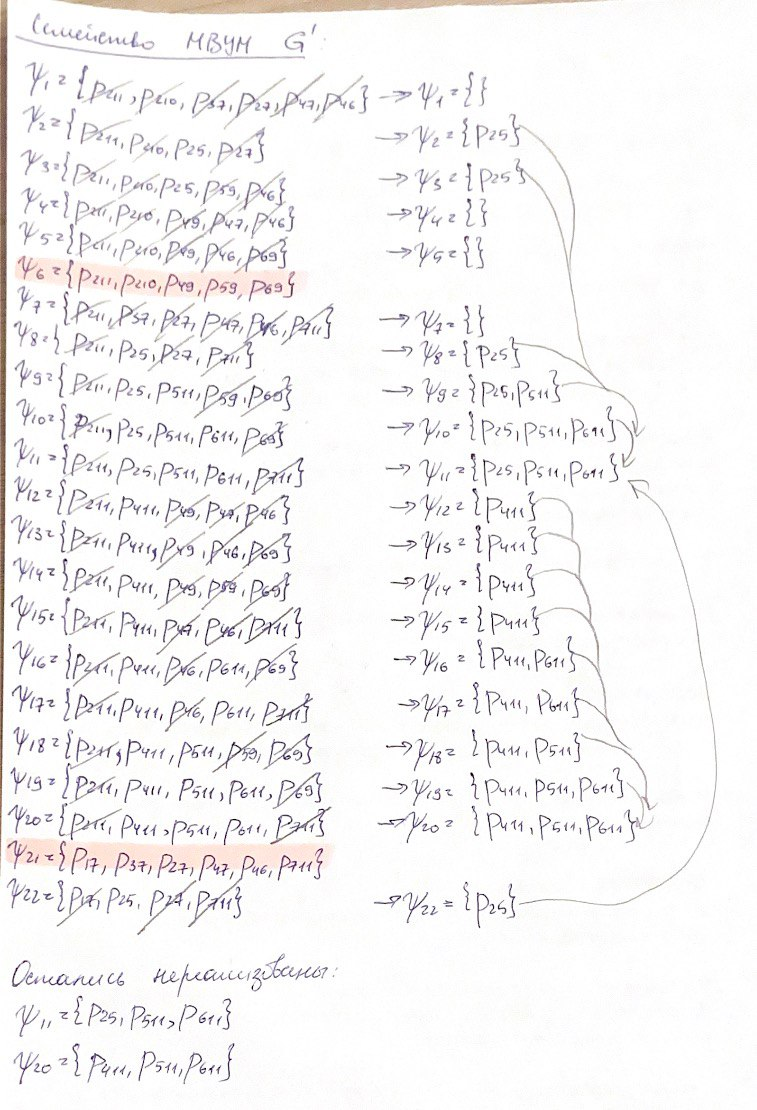 Семейство МВУМ G':
ψ1={p211, p210, p37, p27, p47, p46} → ψ1={}
ψ2={p211, p210, p25, p27} → ψ2={p25}
ψ3={p211, p210, p25, p59, p46} → ψ3={p25}
ψ4={p211, p210, p49, p47, p46} → ψ4={}
ψ5={p211, p210, p49, p46, p69} → ψ5={}
ψ6={p211, p210, p49, p59, p69}
ψ7={p211, p37, p27, p47, p46, p711} → ψ7={}
ψ8={p211, p25, p27, p711} → ψ8={p25}
ψ9={p211, p25, p511, p59, p69} → ψ9={p25, p511}
ψ10={p211, p25, p511, p611, p69} → ψ10={p25, p511, p611}
ψ11={p211, p25, p511, p611, p711} → ψ11={p25, p511, p611}
ψ12={p211, p411, p49, p47, p46} → ψ12={p411}
ψ13={p211, p411, p49, p46, p69} → ψ13={p411}
ψ14={p211, p411, p49, p59, p69} → ψ14={p411}
ψ15={p211, p411, p47, p46, p711} → ψ15={p411}
ψ16={p211, p411, p46, p611, p69} → ψ16={p411, p611}
ψ17={p211, p411, p46, p611, p711} → ψ17={p411, p611}
ψ18={p211, p411, p511, p59, p69} → ψ18={p411, p511}
ψ19={p211, p411, p511, p611, p69} → ψ19={p411, p511, p611}
ψ20={p211, p411, p511, p611, p711} → ψ20={p411, p511, p611}
ψ21={p17, p37, p27, p47, p46, p711}
ψ22={p17, p25, p27, p711} → ψ22={p25}
Остались нереализованы:
ψ11={p25, p511, p611}
ψ20={p411, p511, p611}